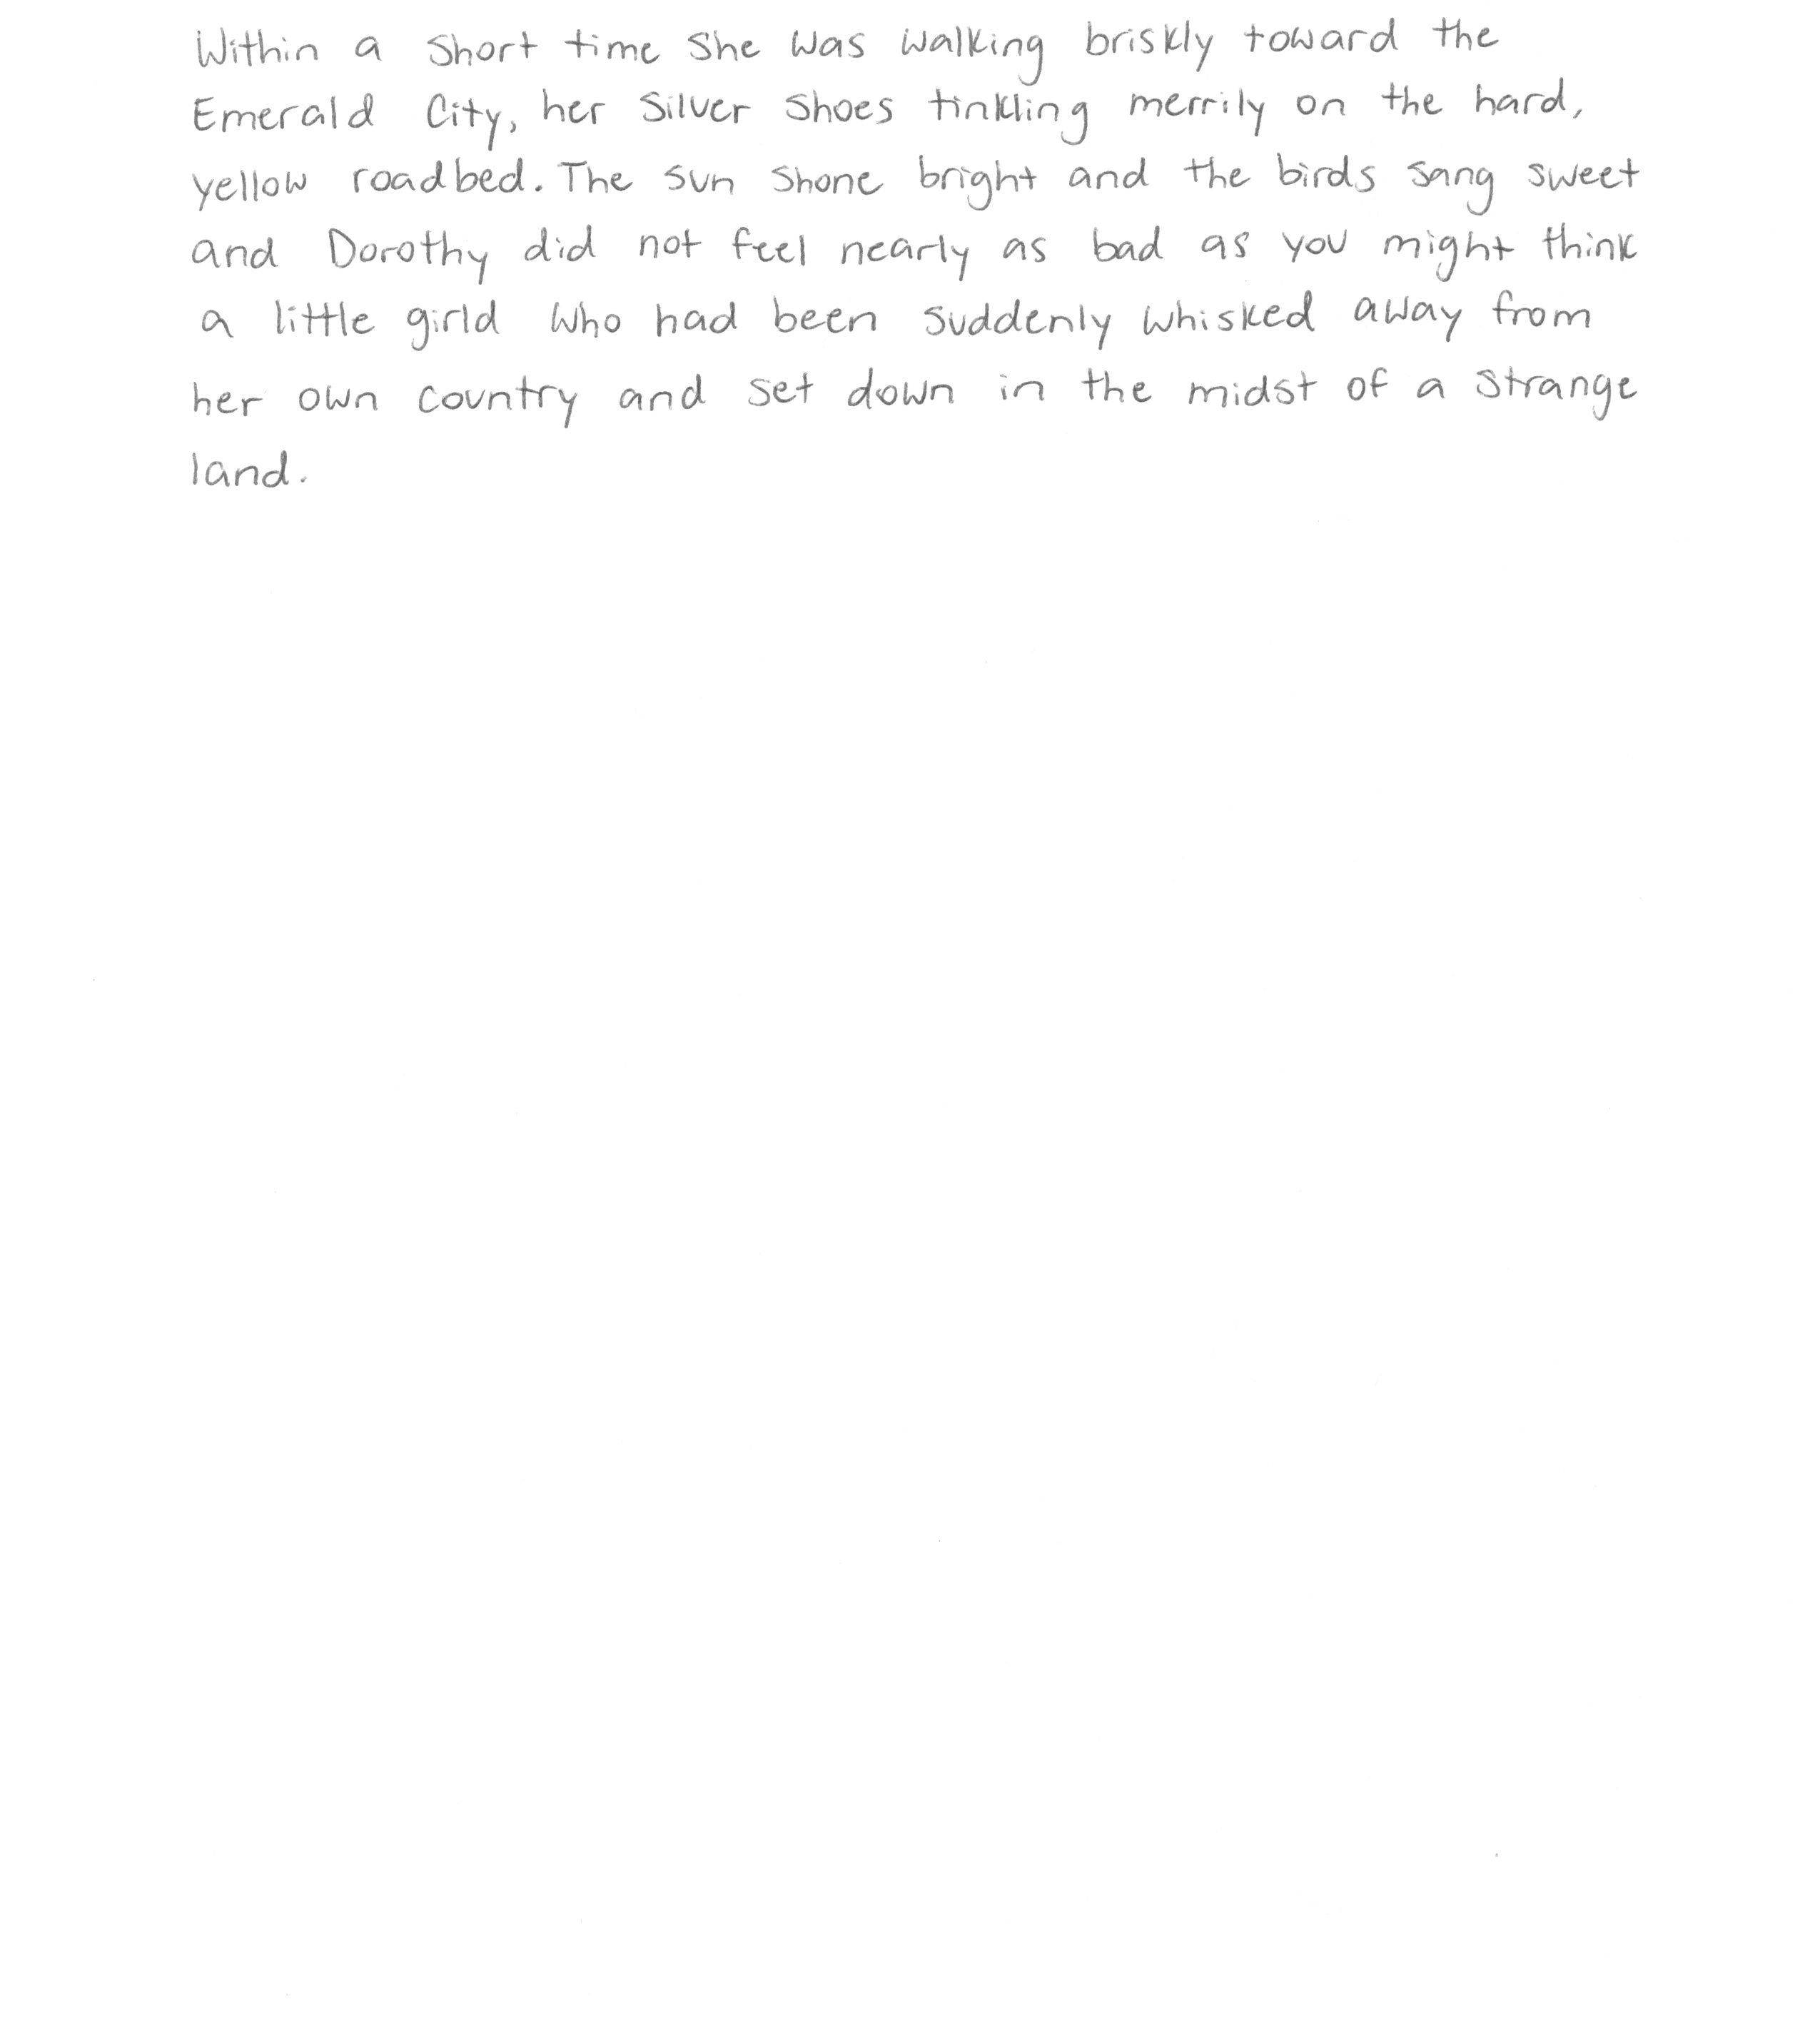 Within a short time she was walking briskly toward the
Emerald City, her Silver Shoes tinkling merrily on the hard,
yellow roadbed. The sun shone bright and the birds sang sweet
and Dorothy did not feel nearly as bad as you might think
a little girld who had been suddenly whisked away from
her own country and set down in the midst of a strange
land.